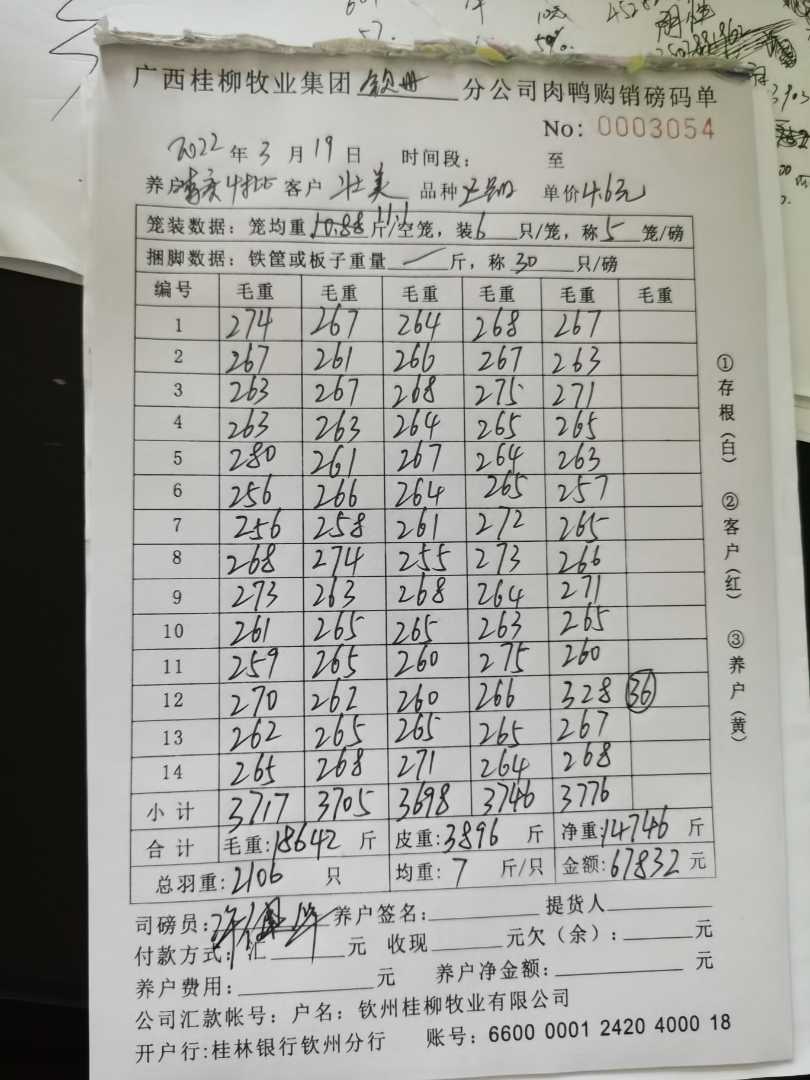 10%
50%
广西桂柳牧业集团 钦州 分公司肉鸭购销磅码单
No: 0003054
2022 年 3 月 19 日 时间段: 至
养户 客户 壮美 品种 单价 4.6元
笼装数据: 笼均重 10.88 11.1 斤/空笼, 装 6 只/笼, 称 5 笼/磅
捆脚数据: 铁筐或板子重量 / 斤, 称 30 只/磅
编号 毛重 毛重 毛重 毛重 毛重 毛重
1 274 267 264 268 267
2 267 261 266 267 263
3 263 267 268 275 271
4 263 263 264 265 265
5 280 261 267 264 263
6 256 266 264 265 257
7 256 258 261 272 265
8 268 274 255 273 266
9 273 263 268 264 271
10 261 265 265 263 265
11 259 265 260 275 260
12 270 262 260 266 328 36
13 262 265 265 265 267
14 265 268 271 264 268
小计 3717 3705 3698 3746 3776
合计 毛重: 18642 斤 皮重: 3896 斤 净重: 14746 斤
总羽重: 2106 只 均重: 7 斤/只 金额: 67832 元
司磅员: 养户签名: 提货人
付款方式: 汇 元 收现 元欠(余): 元
养户费用: 元 养户净金额: 元
公司汇款帐号: 户名: 钦州桂柳牧业有限公司
开户行:桂林银行钦州分行 账号: 6600 0001 2420 4000 18
①存根(白) ②客户(红) ③养户(黄)